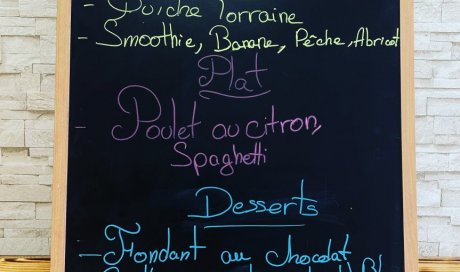 - Quiche Lorraine
- Smoothie, Banane, Pêche, Abricot
Plat
- Poulet au citron,
Spaghetti
Desserts
- Fondant au chocolat